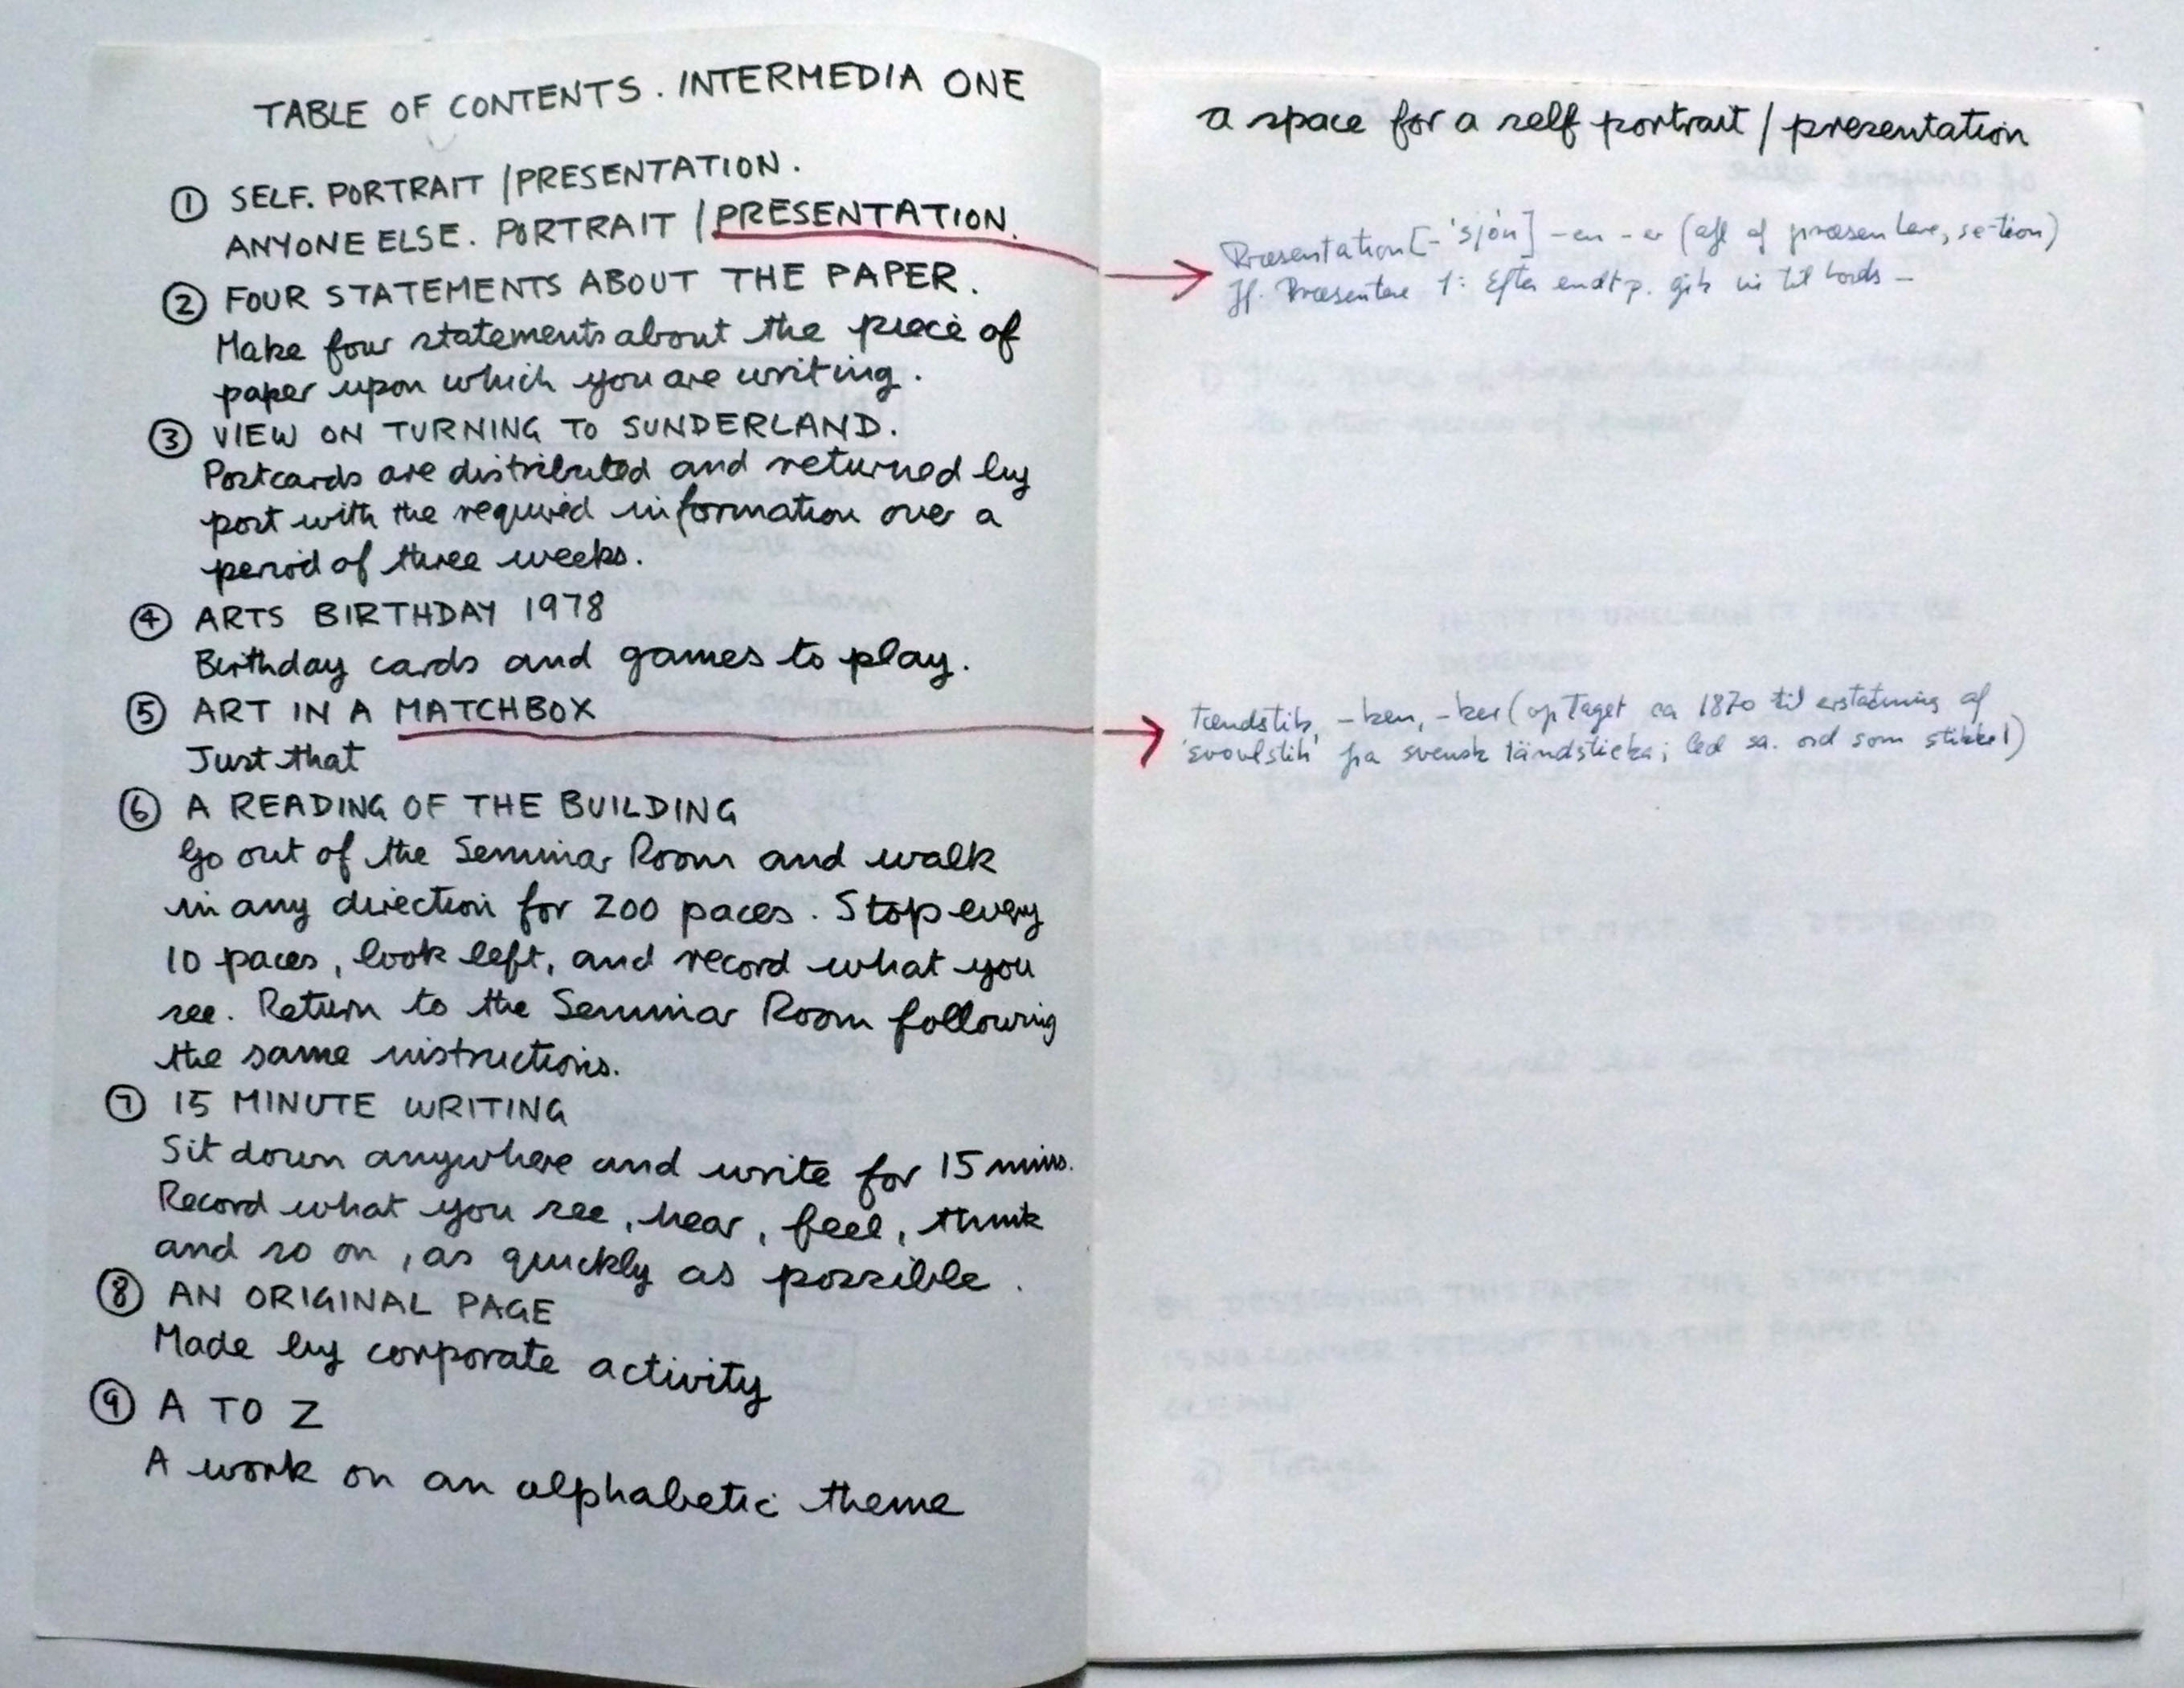 TABLE OF CONTENTS. INTERMEDIA ONE
① SELF. PORTRAIT / PRESENTATION.
ANYONE ELSE. PORTRAIT / PRESENTATION.
② FOUR STATEMENTS ABOUT THE PAPER.
Make four statements about the piece of
paper upon which you are writing.
③ VIEW ON TURNING TO SUNDERLAND.
Postcards are distributed and returned by
post with the required information over a
period of three weeks.
④ ARTS BIRTHDAY 1978
Birthday cards and games to play.
⑤ ART IN A MATCHBOX
Just that
⑥ A READING OF THE BUILDING
Go out of the Seminar Room and walk
in any direction for 200 paces. Stop every
10 paces, look left, and record what you
see. Return to the Seminar Room following
the same instructions.
⑦ 15 MINUTE WRITING
Sit down anywhere and write for 15 mins.
Record what you see, hear, feel, think
and so on, as quickly as possible.
⑧ AN ORIGINAL PAGE
Made by corporate activity
⑨ A TO Z
A work on an alphabetic theme
a space for a self portrait / presentation
Præsentation [-'sjón] -en -er (afl af præsentere, se-tion)
Jf. Præsentere 1: Efter endt p. gik vi til bords -
tændstik, -ken, -ker (optaget ca 1870 til erstatning af
'svovlstik' fra svensk tändsticka; led sa. ord som stikke 1)